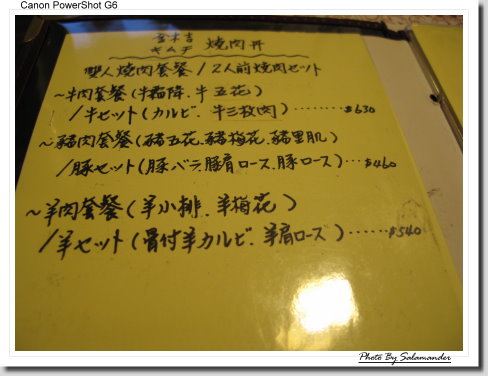 Canon PowerShot G6
金木吉
キムチ 燒肉丼
雙人燒肉套餐 / 2人前焼肉セット
~牛肉套餐 (牛霜降. 牛五花)
/ 牛セット (カルビ. 牛三枚肉) ........ $630
~豬肉套餐 (豬五花. 豬梅花. 豬里肌)
/豚セット (豚バラ. 豚肩ロース. 豚ロース) ... $460
~羊肉套餐 (羊小排. 羊梅花)
/羊セット (骨付羊カルビ. 羊肩ロース) ...... $540
Photo By Salamander